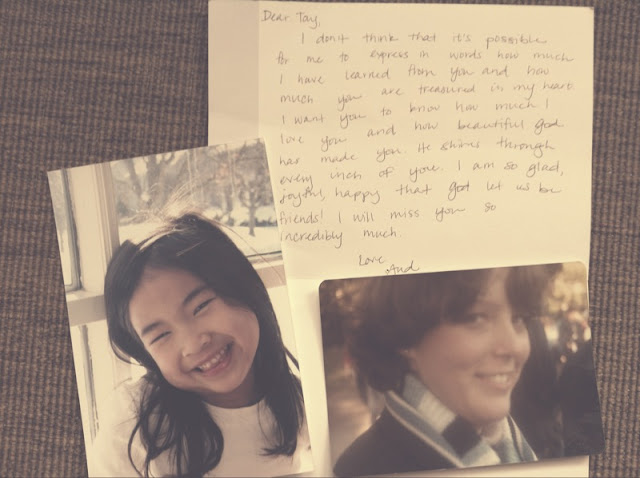 Dear Tay,
I don't think that it's possible
for me to express in words how much
I have learned from you and how
much you are treasured in my heart.
I want you to know how much I
love you and how beautiful God
has made you. He shines through
every inch of you. I am so glad,
joyful, happy that God let us be
friends! I will miss you so
incredibly much.
Love
And